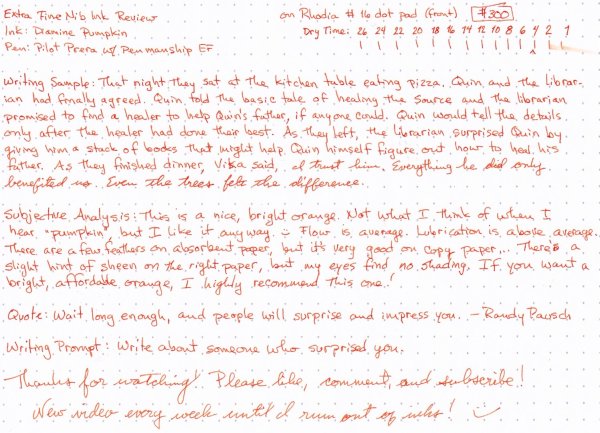 Extra Fine Nib Ink Review on Rhodia #16 dot pad (front) #300
Ink: Diamine Pumpkin Dry Time: 26 24 22 20 18 16 14 12 10 8 6 4 2 1
Pen: Pilot Prera w/ Penmanship EF
Writing Sample: That night they sat at the kitchen table eating pizza. Quin and the librar-
ian had finally agreed. Quin told the basic tale of healing the Source and the librarian
promised to find a healer to help Quin's father, if anyone could. Quin would tell the details
only after the healer had done their best. As they left, the librarian surprised Quin by
giving him a stack of books that might help Quin himself figure out how to heal his
father. As they finished dinner, Vika said, I trust him. Everything he did only
benefited us. Even the trees felt the difference.
Subjective Analysis: This is a nice, bright orange. Not what I think of when I
hear "pumpkin", but I like it anyway. :) Flow is average. Lubrication is above average.
There are a few feathers on absorbent paper, but it's very good on copy paper... There's a
slight hint of sheen on the right paper, but my eyes find no shading. If you want a
bright, affordable orange, I highly recommend this one!
Quote: Wait long enough, and people will surprise and impress you. - Randy Pausch
Writing Prompt: Write about someone who surprised you.
Thanks for watching! Please like, comment, and subscribe!
New video every week until I run out of inks! :)